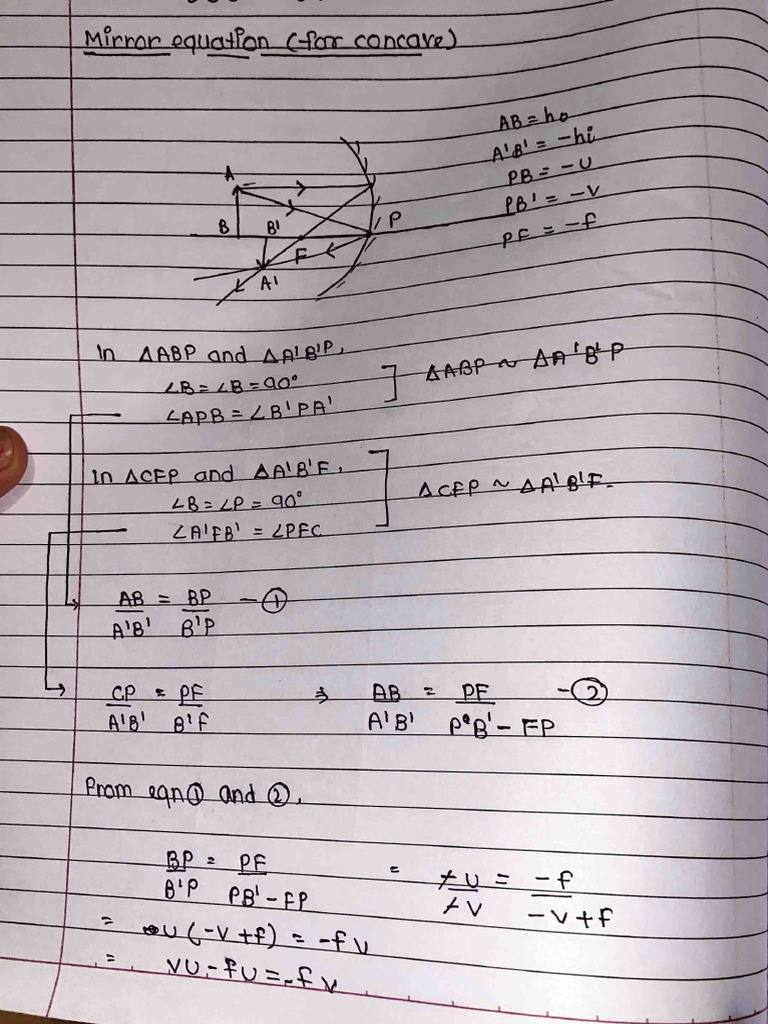 Mirror equation (for concave)
AB = ho
A'B' = -hi
PB = -u
PB' = -v
PF = -f
A
B
B'
P
F
A'
In △ABP and △A'B'P,
∠B = ∠B = 90°
∠APB = ∠B'PA'
△ABP ~ △A'B'P
In △CFP and △A'B'F,
∠B = ∠P = 90°
∠A'FB' = ∠PFC
△CFP ~ △A'B'F.
AB/A'B' = BP/B'P - ①
CP/A'B' = PF/B'F ⇒ AB/A'B' = PF/PB' - FP - ②
From eqn ① and ②,
BP/B'P = PF/PB' - FP = -u/-v = -f/-v+f
= u(-v+f) = -fv
= vu - fu = -fv